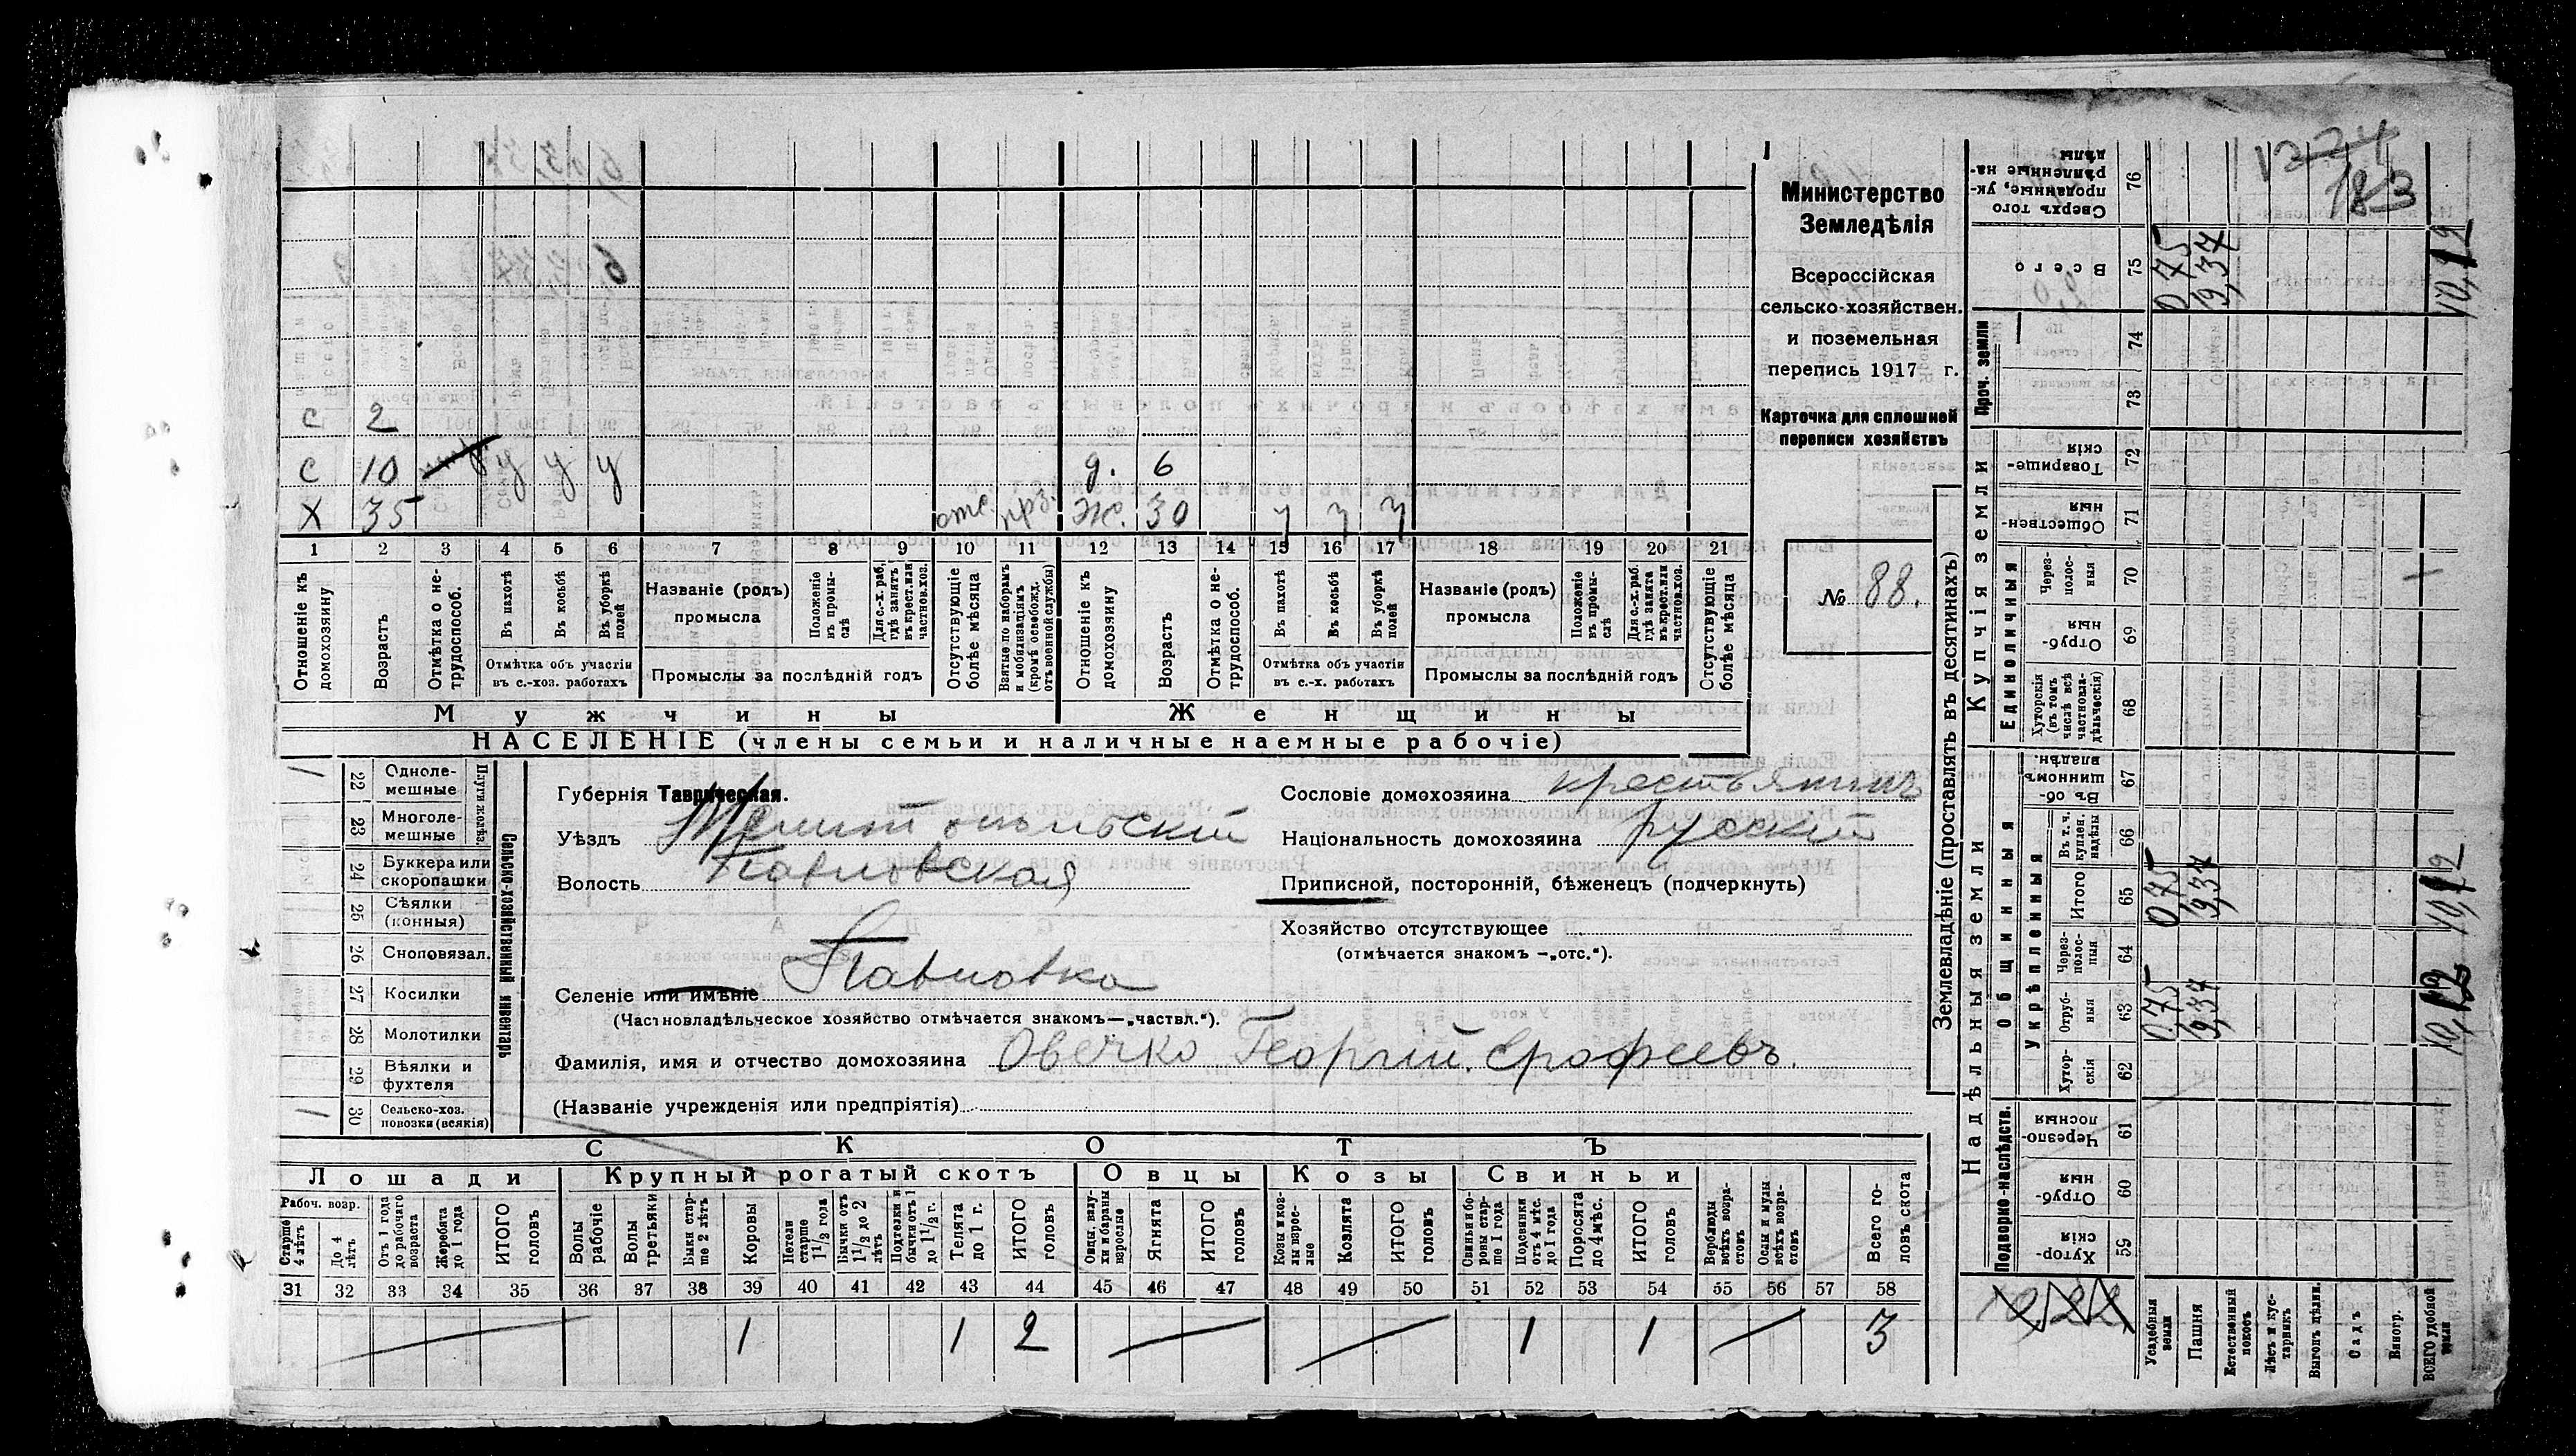 1224
183
Министерство
Земледѣлія
Всероссійская
сельско-хозяйствен.
и поземельная
перепись 1917 г.
Карточка для сплошной
переписи хозяйствъ
№ 88.
С 2
С 10 у у у д. 6
Х 35 отс. прз. Ж. 30 у у у
1 2 3 4 5 6 7 8 9 10 11 12 13 14 15 16 17 18 19 20 21
Отношеніе къ домохозяину
Возрастъ
Отмѣтка о нетрудоспособ.
Въ пахотѣ
Въ косьбѣ
Въ уборкѣ полей
Отмѣтка объ участіи
въ с.-хоз. работахъ
Названіе (родъ)
промысла
Положеніе въ промыслѣ
Для с.-х. раб. гдѣ занятъ въ крест. или частнов. хоз.
Промыслы за послѣдній годъ
Отсутствующіе болѣе мѣсяца
Взятые по наборамъ и мобилизаціямъ (кромѣ освобожд. отъ военной службы)
Отношеніе къ домохозяину
Возрастъ
Отмѣтка о нетрудоспособ.
Въ пахотѣ
Въ косьбѣ
Въ уборкѣ полей
Отмѣтка объ участіи
въ с.-х. работахъ
Названіе (родъ)
промысла
Положеніе въ промыслѣ
Для с.-х. раб. гдѣ занята въ крест. или частнов. хоз.
Промыслы за послѣдній годъ
Отсутствующіе болѣе мѣсяца
Мужчины
Женщины
НАСЕЛЕНІЕ (члены семьи и наличные наемные рабочіе)
Сельско-хозяйственный инвентарь
22 Однолемешные
23 Многолемешные
24 Буккера или скоропашки
25 Сѣялки (конныя)
26 Сноповязал.
27 Косилки
28 Молотилки
29 Вѣялки и фухтеля
30 Сельско-хоз. повозки (всякія)
Губернія Таврическая.
Уѣздъ Мелитопольскій
Волость Павловская
Селеніе или имѣніе Павловка
(Частновладѣльческое хозяйство отмѣчается знакомъ—„частвл.“).
Фамилія, имя и отчество домохозяина Овечко Георгій. Ерофеевъ.
(Названіе учрежденія или предпріятія)
Сословіе домохозяина крестьянинъ
Національность домохозяина русскій
Приписной, посторонній, бѣженецъ (подчеркнуть)
Хозяйство отсутствующее
(отмѣчается знакомъ —„отс.“).
СКОТЪ
Лошади
Крупный рогатый скотъ
Овцы
Козы
Свиньи
Рабоч. возр.
Старше 4 лѣтъ
До 4 лѣтъ
Отъ 1 года до рабочаго возраста
Жеребята до 1 года
ИТОГО головъ
Волы рабочіе
Волы третьяки
Быки старше 2 лѣтъ
Коровы
Нетели старше 1½ года
Бычки отъ 1½ до 2 лѣтъ
Подтелки и бычки отъ 1 до 1½ г.
Телята до 1 г.
ИТОГО головъ
Ягнята
ИТОГО головъ
Козы и козлы взрослые
Козлята
ИТОГО головъ
Свиньи и боровы старше 1 года
Подсвинки отъ 4 мѣс. до 1 года
Поросята до 4 мѣс.
ИТОГО головъ
Верблюды всѣхъ возрастовъ
Ослы и мулы всѣхъ возрастовъ
Всего головъ скота
31 32 33 34 35 36 37 38 39 40 41 42 43 44 45 46 47 48 49 50 51 52 53 54 55 56 57 58
1 1 2 1 1 3
Землевладѣніе (проставлять въ десятинахъ)
Надѣльныя земли
Купчія земли
Проч. земли
Подворно-наслѣдств.
Общинныя
Укрѣпленныя
Единоличныя
Хуторскія 59
Отрубныя 60
Черезполосныя 61
Хуторскія 62
Отрубныя 63
Черезполосныя 64
Итого 65
Въ т. ч. куплен. надѣлы 66
Въ общинномъ владѣн. 67
Хуторскія (въ томъ числѣ всѣ частновладѣльческія) 68
Отрубныя 69
Черезполосныя 70
Общественныя 71
Товарищескія 72
73
74
Всего 75
Сверхъ того проданные, укрѣпленные надѣлы 76
Усадебныя земли 0,75 0,75 0,75
Пашня 9,37 9,37 9,37
Естественный покосъ
Лѣсъ и кустарникъ
Выгонъ цѣлин.
Садъ
Виногр.
ВСЕГО удобной земли 10,12 10,12 10,12